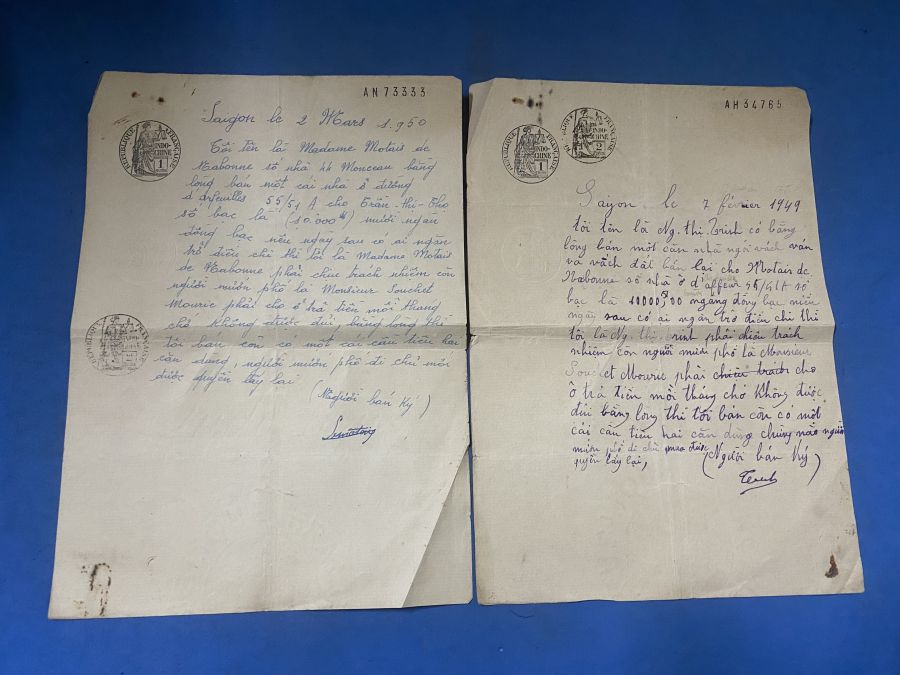 AN 73333
RÉPUBLIQUE FRANÇAISE
INDO-
CHINE
1
Saigon le 2 Mars 1.950
Tôi tên là Madame Motais de
Nabonne số nhà 44 Monceau bằng
lòng bán một cái nhà ở đường
d'arfeuilles 55/51 A cho Trần-thi-Tho
số bạc là (10.000$) mười ngàn
đồng bạc nếu ngày sau có ai ngăn
trở điều chi thì tôi là Madame Motais
de Nabonne phải chiu trach nhiêm còn
người muón phố là Monsieur Souchet
Mouric phải cho ở trả tiền mỗi thang
chớ không được đủi, bằng long thì
tôi ban còn có một cai câu tiêu hai
căn dung người muón phố đi chủ mới
được quyền lấy lại
(Người bán ký)
AH 34765
RÉPUBLIQUE FRANÇAISE
INDO-
CHINE
1
INDO-
CHINE
2
Saigon le 7 février 1949
tôi tên là Ng. thi Trinh có bằng
lòng bán một căn nhà ngói vách ván
và vách đất bán lại cho Motais de
Nabonne số nhà ở d'affeur 55/51A số
bạc là 10000$00 ngàng đồng bạc niếu
ngày sau có ai ngăn trở điều chi thì
tôi là Ng. thị Trinh phải chiêu trách
nhiêm còn người mướn phố là Monsieur
Souchet Mouric phải chiêu trách cho
ở trả tiền mỗi tháng chớ không được
đủi bằng lòng thì tôi bán còn có một
cái cầu tiêu hai căn dùng chung nào người
mướn phố đi chủ mua được
quyền lấy lại, (Người bán Ký)